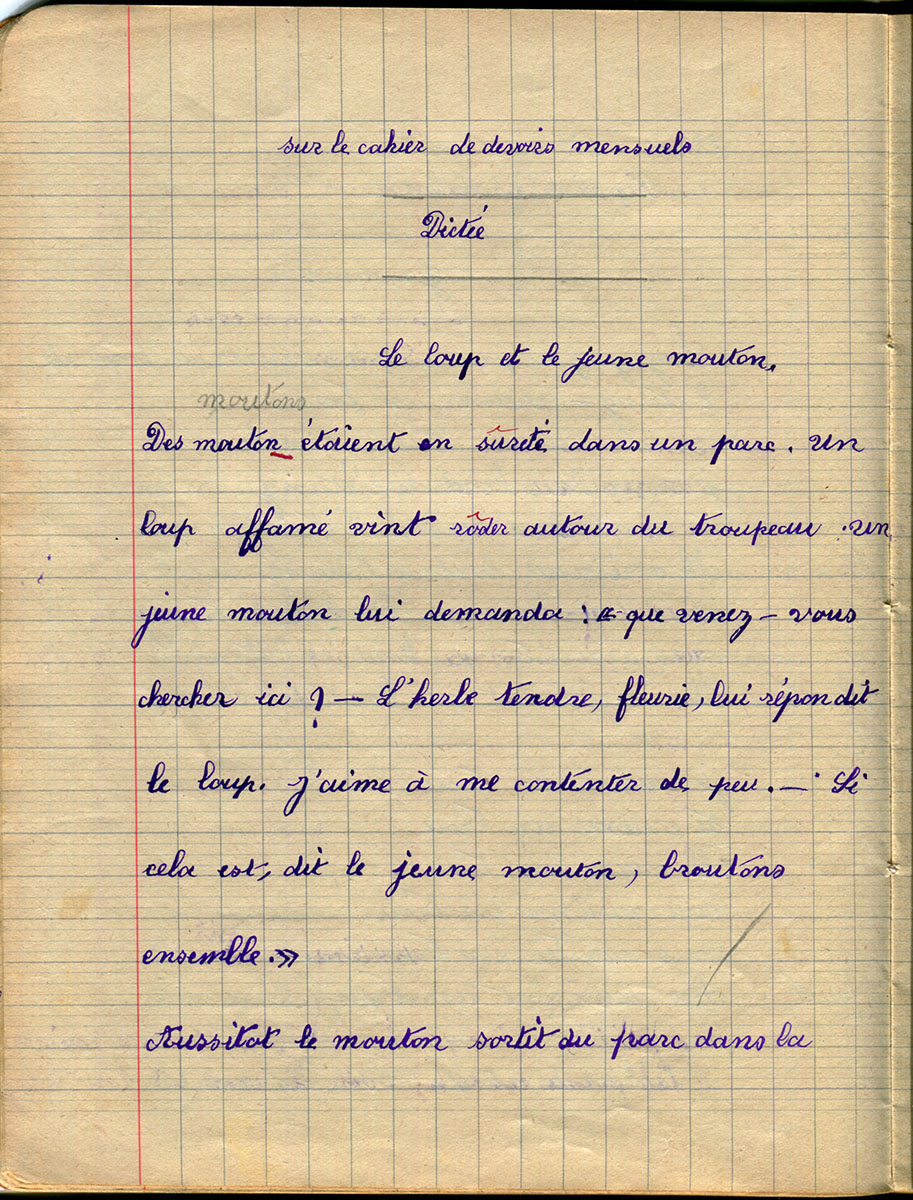 sur le cahier de devoirs mensuels
Dictée
Le loup et le jeune mouton.
moutons
Des mouton étaient en sûreté dans un parc. Un
loup affamé vint rôder autour du troupeau. Un
jeune mouton lui demanda : « que venez-vous
chercher ici ? — L'herbe tendre, fleurie, lui répondit
le loup. J'aime à me contenter de peu. — Si
cela est, dit le jeune mouton, broutons
ensemble. »
Aussitot le mouton sortit du parc dans la